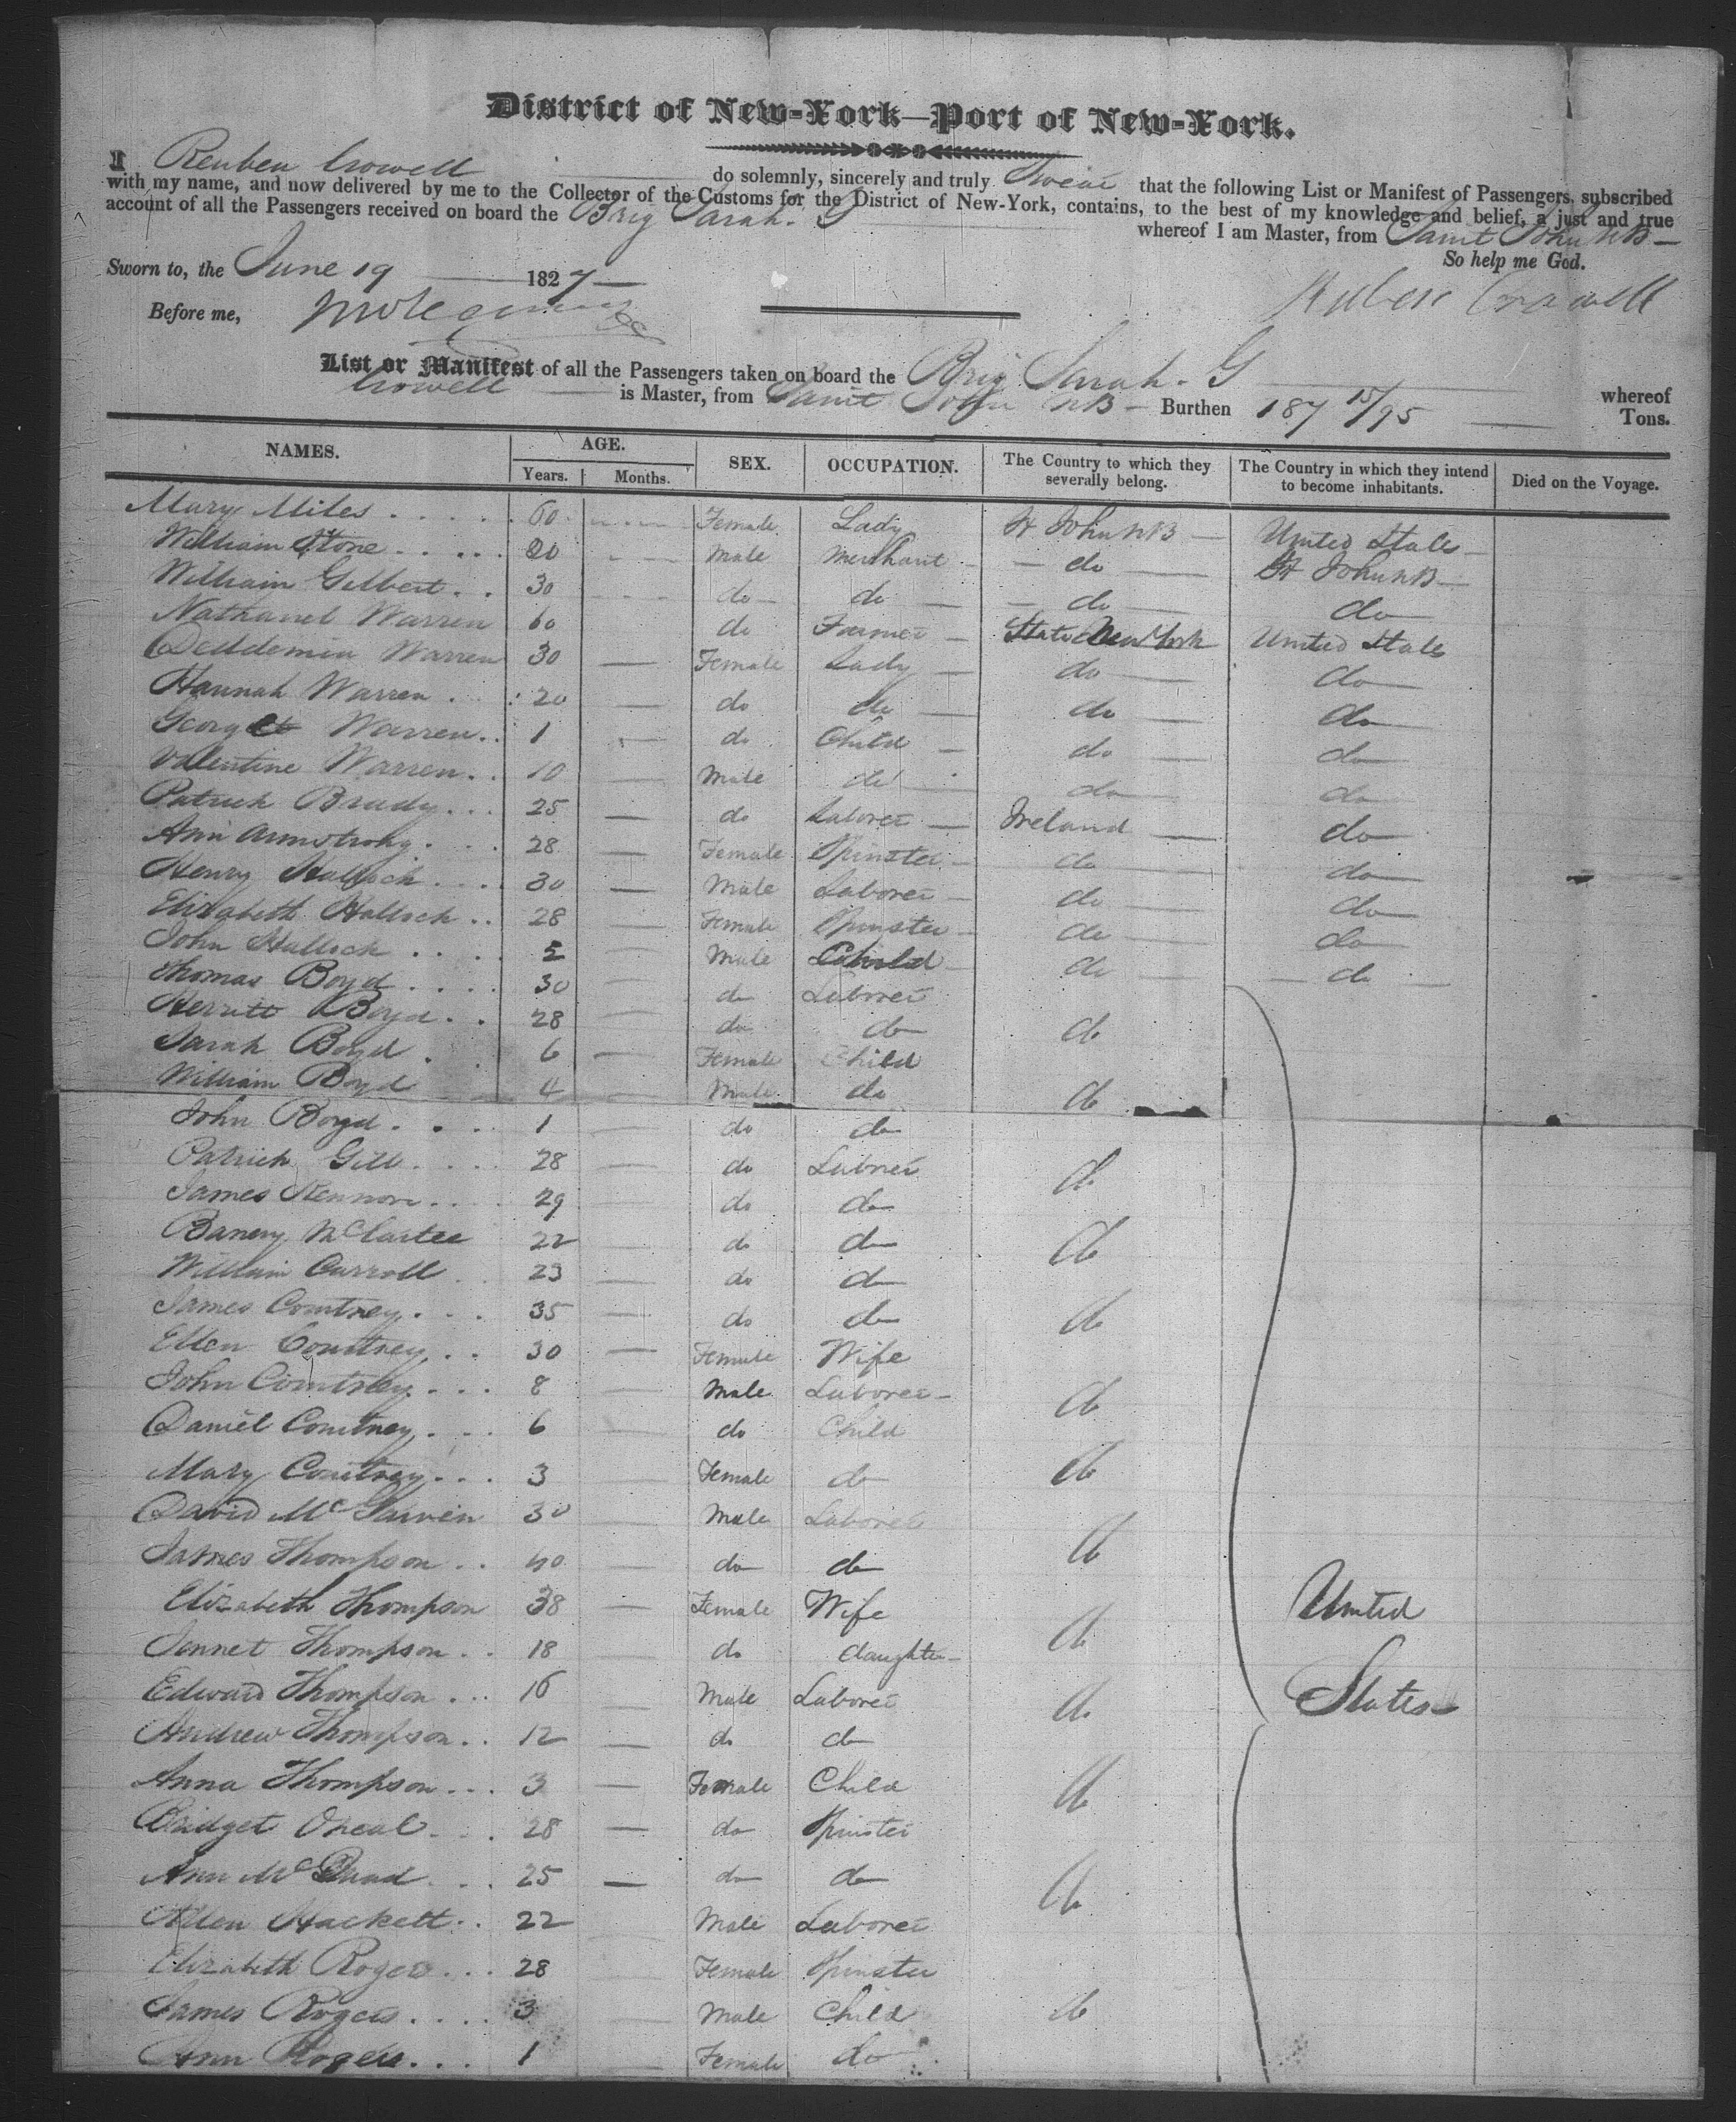 District of New-York—Port of New-York.
I Reuben Crowell do solemnly, sincerely and truly Swear that the following List or Manifest of Passengers, subscribed
with my name, and now delivered by me to the Collector of the Customs for the District of New-York, contains, to the best of my knowledge and belief, a just and true
account of all the Passengers received on board the Brig Sarah. G whereof I am Master, from Saint John NB —
So help me God.
Sworn to, the June 19 1827 —
Before me,
Reuben Crowell
List or Manifest of all the Passengers taken on board the Brig Sarah. G whereof
Crowell is Master, from Saint John NB — Burthen 187 15/95 Tons.
NAMES. AGE. SEX. OCCUPATION. The Country to which they severally belong. The Country in which they intend to become inhabitants. Died on the Voyage.
Years. Months.
Mary Miles 60 Female Lady St John NB United States
William Stone 20 Male Merchant do St John NB
William Gilbert 30 do do do do
Nathaniel Warren 60 do Farmer State New York United States
Warren 30 Female Lady do do
Hannah Warren 20 do do do do
Warren 1 do Child do do
Valentine Warren 10 Male do do do
Patrick Brady 25 do Laborer Ireland do
Ann Armstrong 28 Female Spinster do do
Henry Hallock 30 Male Laborer do do
Elizabeth Hallock 28 Female Spinster do do
John Hallock 5 Male Child do do
Thomas Boyd 30 do Laborer
Boyd 28 do do do
Sarah Boyd 6 Female Child
William Boyd 4 Male do do
John Boyd 1 do do
Patrick Gill 28 do Laborer do
James 29 do do
22 do do do
William Carroll 23 do do
James Courtney 35 do do do
Ellen Courtney 30 Female Wife
John Courtney 8 Male Laborer do
Daniel Courtney 6 do Child
Mary Courtney 3 Female do do
David Mc 30 Male Laborer
James Thompson 40 do do do
Elizabeth Thompson 38 Female Wife United
Jennet Thompson 18 do daughter do
Edward Thompson 16 Male Laborer do States
Andrew Thompson 12 do do
Anna Thompson 3 Female Child do
Bridget Oneal 28 do Spinster
Ann McQuad 25 do do do
Allen Hackett 22 Male Laborer
Elizabeth Rogers 28 Female Spinster
James Rogers 3 Male Child do
Ann Rogers 1 Female do